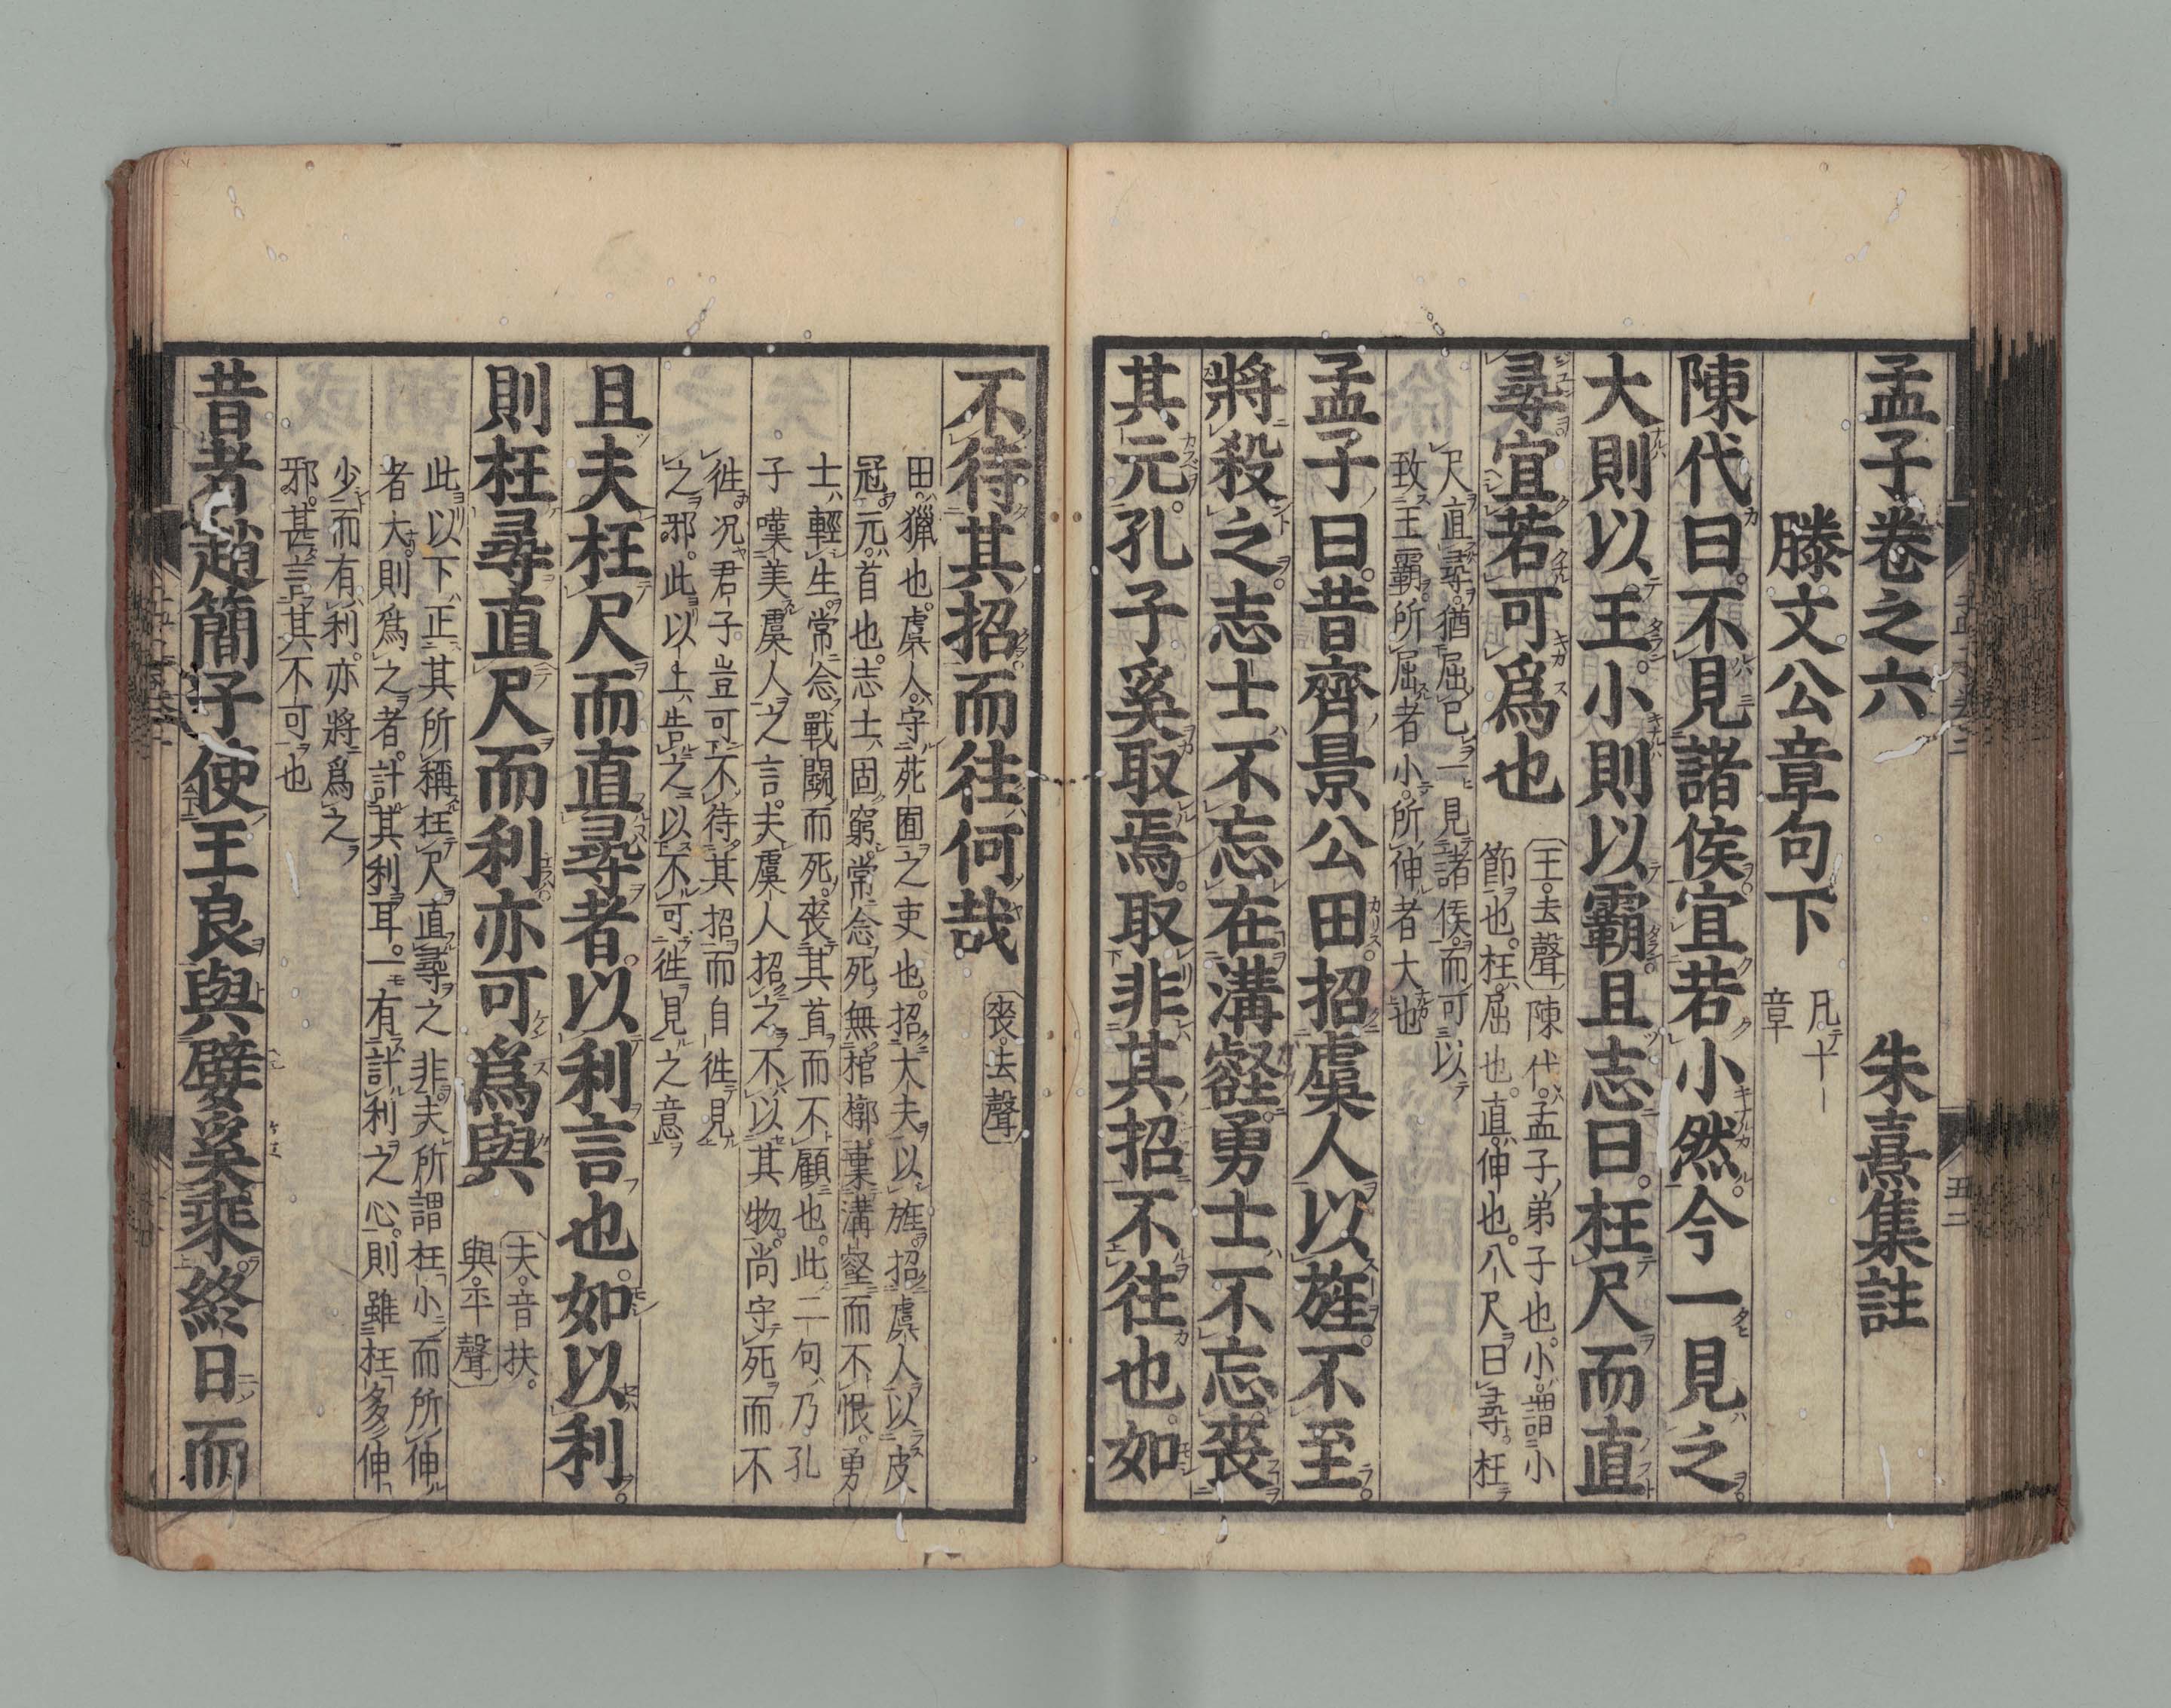 孟子卷之六　朱熹集註
滕文公章句下
凡十
章
陳代曰。不見諸侯。宜若小然。今一見之。
大則以王。小則以霸。且志曰。枉尺而直
尋。宜若可爲也
〔王。去聲〕陳代。孟子弟子也。小。謂小
節也。枉。屈也。直。伸也。八尺曰尋。枉
尺直尋。猶屈己一見諸侯。而可以
致王霸。所屈者小。所伸者大也
孟子曰。昔齊景公田。招虞人以旌。不至。
將殺之。志士不忘在溝壑。勇士不忘喪
其元。孔子奚取焉。取非其招不往也。如
不待其招而往何哉
〔喪。去聲〕
田。獵也。虞人。守苑囿之吏也。招大夫以旌。招虞人以皮
冠。元。首也。志士固窮。常念死無棺槨。棄溝壑而不恨。勇
士輕生。常念戰鬪而死。喪其首而不顧也。此二句。乃孔
子嘆美虞人之言。夫虞人招之不以其物。尚守死而不
徃。况君子豈可不待其招而自徃見
之邪。此以上。告之以不可徃見之意
且夫枉尺而直尋者。以利言也。如以利。
則枉尋直尺而利亦可爲與
〔夫。音扶。
與。平聲〕
此以下。正其所稱枉尺直尋之非。夫所謂枉小而所伸
者大。則爲之者。計其利耳。一有計利之心。則雖枉多伸
少而有利。亦將爲之
邪。甚言其不可也
昔者趙簡子使王良與嬖奚乘。終日而